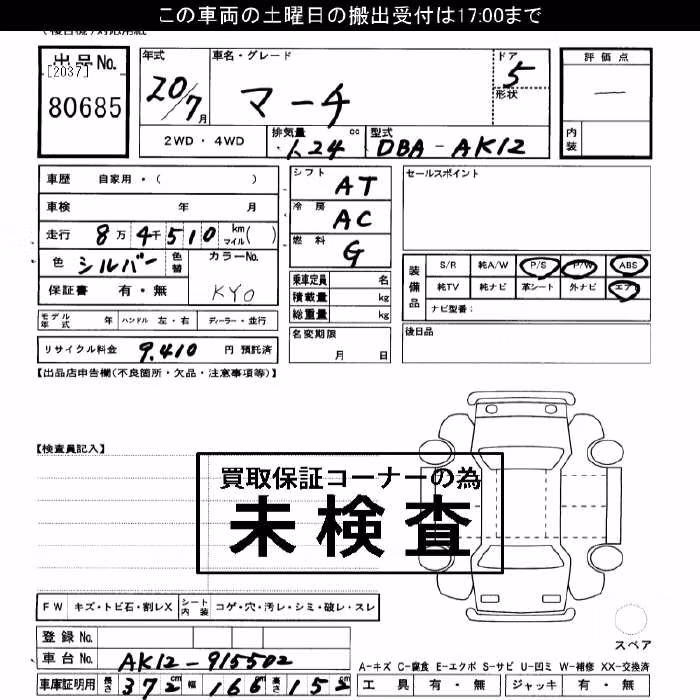 この車両の土曜日の搬出受付は17:00まで
出品No.
[2037]
80685
年式
20/7月
車名・グレード
マーチ
ドア
5
形状
評価点
—
内装
2WD・4WD
排気量
1.24 cc
型式
DBA-AK12
車歴 自家用・( )
車検 年 月
走行 8万4千510 km マイル( )
色 シルバー 色替
カラーNo.
KY0
保証書 有・無
シフト AT
冷房 AC
燃料 G
乗車定員 名
積載量 kg
総重量 kg
名変期限
月 日
セールスポイント
装備品
S/R 純A/W P/S P/W ABS
純TV 純ナビ 革シート 外ナビ エアB
ナビ型番:
後日品
モデル年式 年 ハンドル 左・右 ディーラー・並行
リサイクル料金 9,410 円 預託済
【出品店申告欄(不良箇所・欠品・注意事項等)】
【検査員記入】
買取保証コーナーの為
未検査
FW キズ・トビ石・割レX シート内装 コゲ・穴・汚レ・シミ・破レ・スレ
登録No.
車台No. AK12-915502
車庫証明用 長さ 372cm 幅 166cm 高さ 152cm
スペア
A-キズ C-腐食 E-エクボ S-サビ U-凹ミ W-補修 XX-交換済
工具 有・無 ジャッキ 有・無